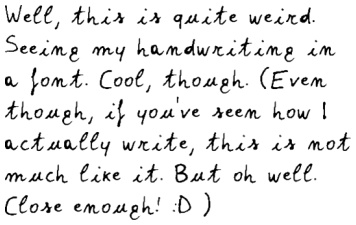 Well, this is quite weird.
Seeing my handwriting in
a font. Cool, though. (Even
though, if you've seen how I
actually write, this is not
much like it. But oh well.
Close enough! :D )